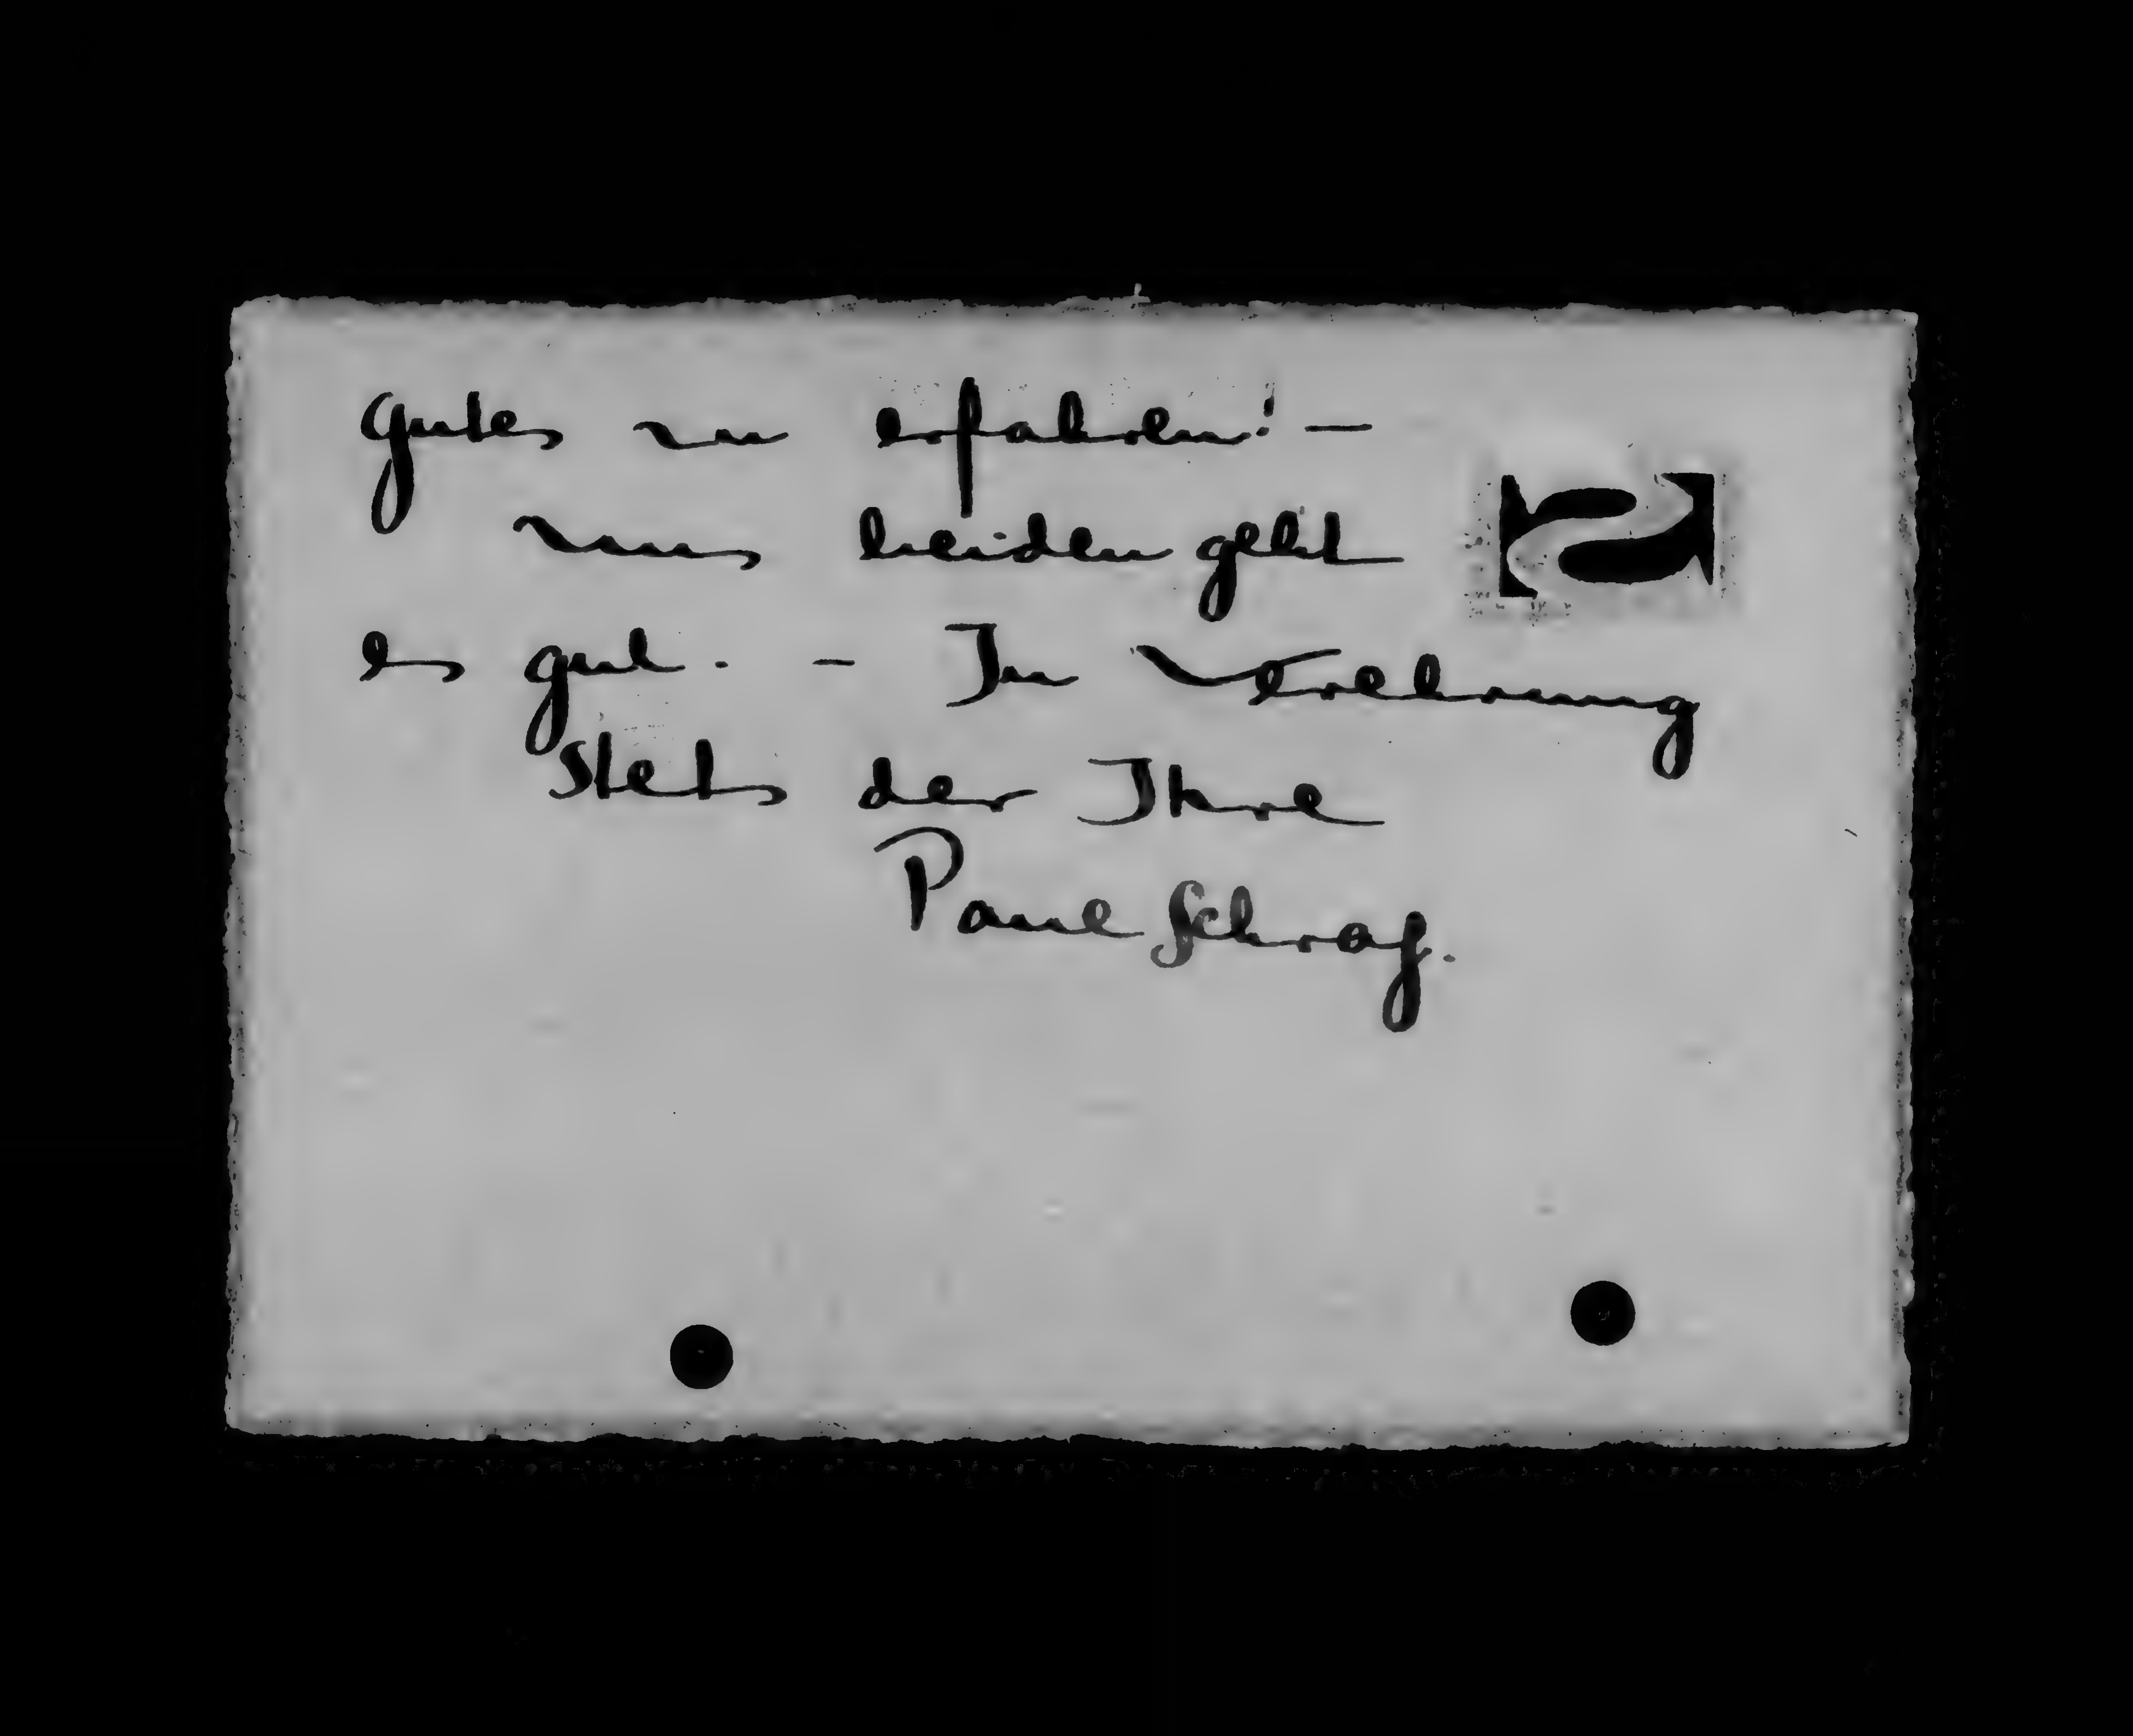 Gutes zu erfahren! –
Uns beiden geht
es gut. – In Verehrung
Stets der Ihre
Paul Schrag.